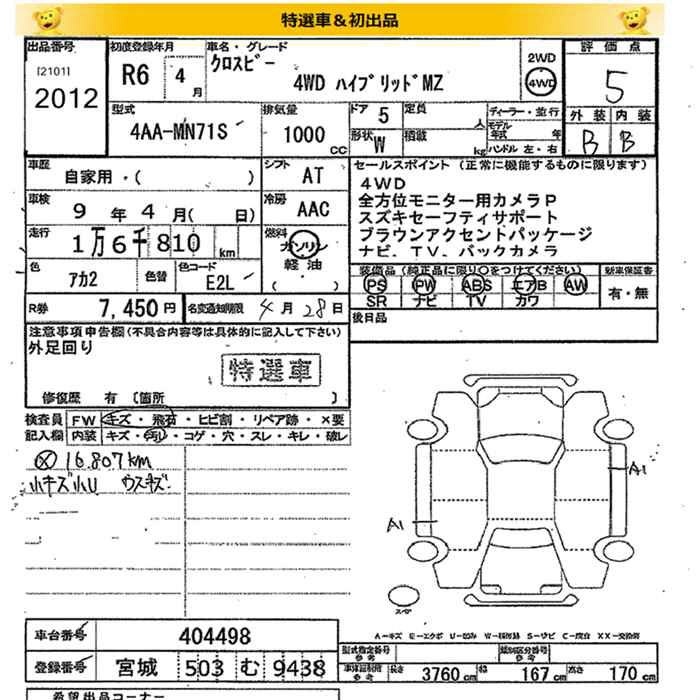 特選車＆初出品
出品番号 初度登録年月 車名・グレード 評価点
[2101] 2012 R6 4月 クロスビー 4WD ハイブリッドMZ 2WD 4WD 5
型式 排気量 ドア 5 定員 人 ディーラー・並行 外装 内装
4AA-MN71S 1000 CC 形状 W 積載 kg モデル年式 年 ハンドル 左・右 B B
車歴 シフト セールスポイント (正常に機能するものに限ります)
自家用・( ) AT 4WD
車検 冷房 全方位モニター用カメラP
9年 4月( 日) AAC スズキセーフティサポート
走行 燃料 ブラウンアクセントパッケージ
1万6千810km ガソリン ナビ．TV．バックカメラ
軽油
( )
色 色替 色コード 装備品 (純正品に限り○をつけてください) 新車保証書
アカ2 E2L PS PW ABS エアB AW 有・無
SR ナビ TV カワ
R券 7,450円 名変通知期限 4月28日 後日品
注意事項申告欄(不具合内容等は具体的に記入して下さい)
外足回り
特選車
修復歴 有 〔箇所 〕
検査員 FW キズ・飛石・ヒビ割・リペア跡・×要
記入欄 内装 キズ・汚れ・コゲ・穴・スレ・キレ・破レ
⊗ 16.807km
小キズ小U ウスキズ
A1
A1
スペア
A-キズ E-エクボ U-凹み W-補修跡 S-サビ C-腐食 XX-交換済
車台番号 404498
型式指定番号 参考 類別区分番号 参考
登録番号 宮城 503 む 9438
車体証明等 参考 長さ 3760cm 幅 167cm 高さ 170cm
希望出品コーナー